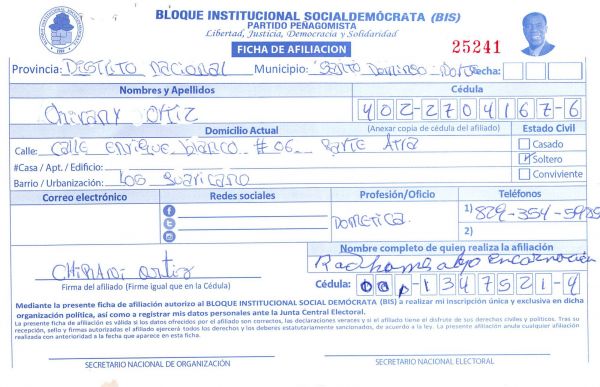 BLOQUE INSTITUCIONAL SOCIALDEMÓCRATA (BIS)
PARTIDO PEÑAGOMISTA
Libertad, Justicia, Democracia y Solidaridad
FICHA DE AFILIACION
25241
Provincia: Distrito nacional Municipio: Santo Domingo Norte Fecha:
Nombres y Apellidos Cédula
Chirany Ortiz 402-2704167-6
Domicilio Actual (Anexar copia de cédula del afiliado) Estado Civil
Calle: Calle enrique blanco #06 Parte Atra Casado
#Casa / Apt. / Edificio: Soltero
Barrio / Urbanización: Los Guaricano Conviviente
Correo electrónico Redes sociales Profesión/Oficio Teléfonos
Dometica 1) 829-354-
2)
Nombre completo de quien realiza la afiliación
Encarnación
ortiz
Firma del afiliado (Firme igual que en la Cédula) Cédula: 001-1347521-9
Mediante la presente ficha de afiliación autorizo al BLOQUE INSTITUCIONAL SOCIAL DEMÓCRATA (BIS) a realizar mi inscripción única y exclusiva en dicha
organización política, así como a registrar mis datos personales ante la Junta Central Electoral.
La presente ficha de afiliación es válida si los datos ofrecidos por el afiliado son correctos, las declaraciones veraces y si el afiliado tiene el disfrute de sus derechos civiles y políticos. Tras su
recepción, sello y firmas autorizadas el afiliado ejercerá todos los derechos y los deberes estatutariamente sancionados, de acuerdo a la ley. La presente afiliación anula cualquier afiliación
realizada con anterioridad a la fecha que aparece en esta ficha.
SECRETARIO NACIONAL DE ORGANIZACIÓN SECRETARIO NACIONAL ELECTORAL